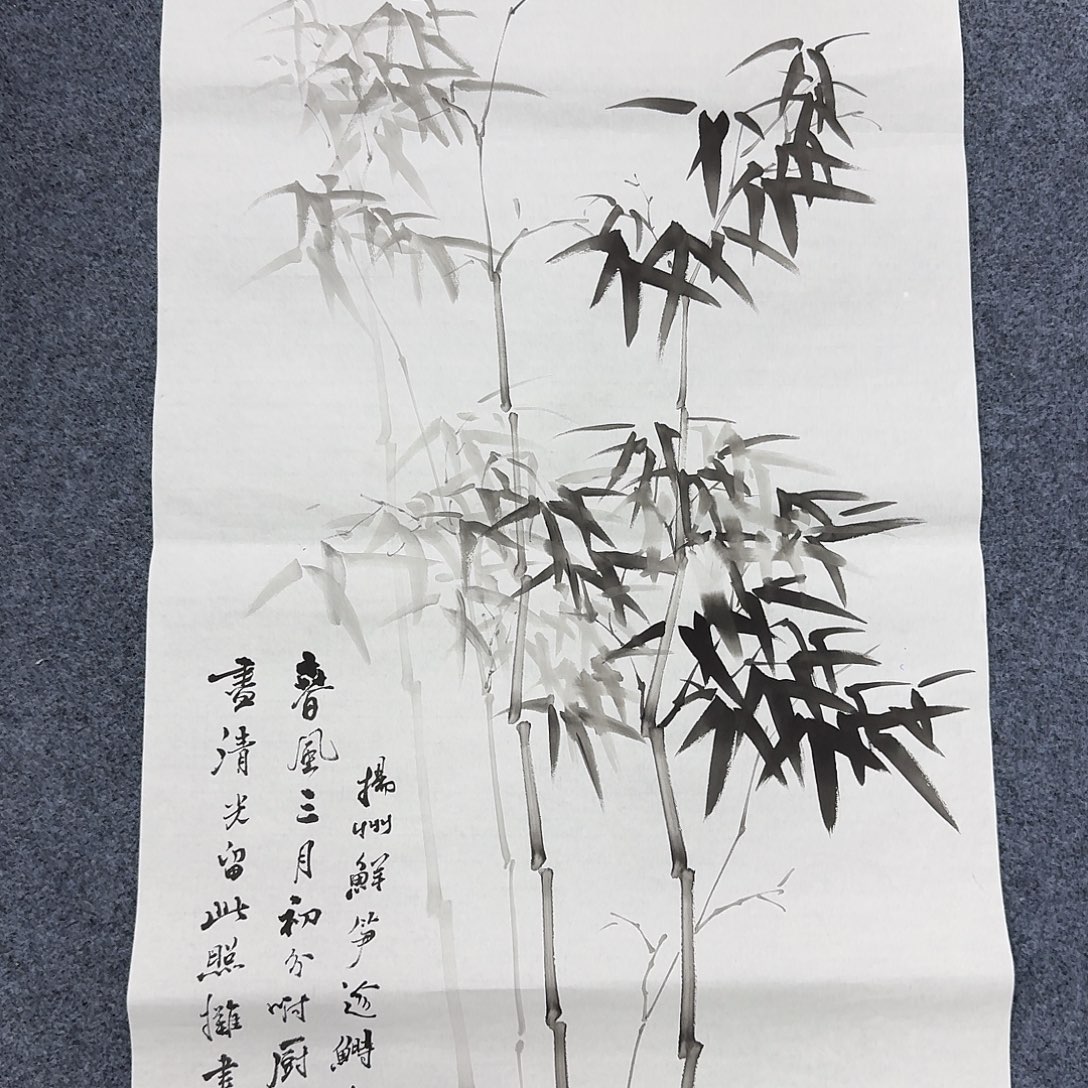 揚州鮮笋趁鰣
春風三月初分咐厨
盡清光留此照攤書